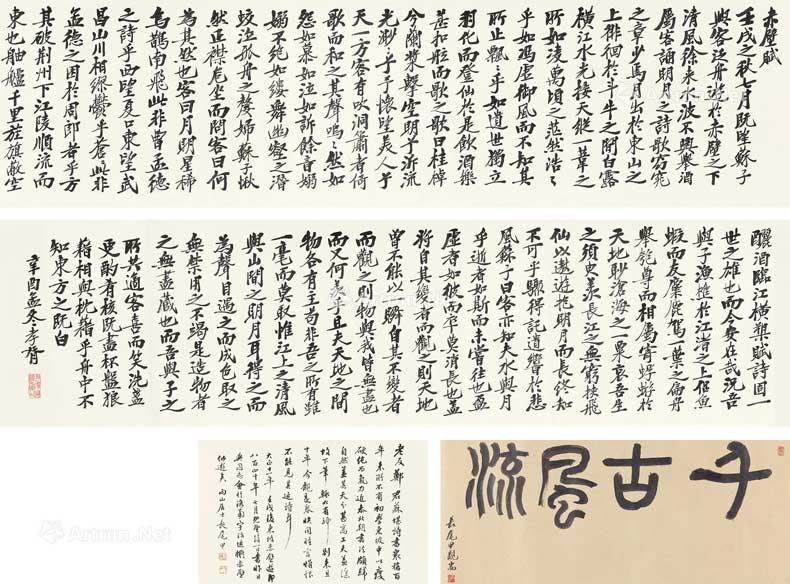 赤壁賦
壬戌之秋七月既望蘇子
與客泛舟遊於赤壁之下
清風徐來水波不興舉酒
屬客誦明月之詩歌窈窕
之章少焉月出於東山之
上徘徊於斗牛之間白露
橫江水光接天縱一葦之
所如凌萬頃之茫然浩浩
乎如馮虛御風而不知其
所止飄乎如遺世獨立
羽化而登仙於是飲酒樂
甚扣舷而歌之歌曰桂棹
兮蘭槳擊空明兮泝流
光渺兮予懷望美人兮
天一方客有吹洞簫者倚
歌而和之其聲嗚嗚然如
怨如慕如泣如訴餘音嫋
嫋不絕如縷舞幽壑之潛
蛟泣孤舟之嫠婦蘇子愀
然正襟危坐而問客曰何
為其然也客曰月明星稀
烏鵲南飛此非曹孟德
之詩乎西望夏口東望武
昌山川相繆鬱乎蒼此非
孟德之困於周郎者乎方
其破荊州下江陵順流而
東也舳艫千里旌旗蔽空
釃酒臨江橫槊賦詩固一
世之雄也而今安在哉況吾
與子漁樵於江渚之上侶魚
蝦而友麋鹿駕一葉之扁舟
舉匏尊而相屬寄蜉蝣於
天地渺滄海之一粟哀吾生
之須臾羨長江之無窮挾飛
仙以遨遊抱明月而長終知
不可乎驟得託遺響於悲
風蘇子曰客亦知夫水與月
乎逝者如斯而未嘗往也盈
虛者如彼而卒莫消長也蓋
將自其變者而觀之則天地
曾不能以一瞬自其不變者
而觀之則物與我皆無盡也
而又何羨乎且夫天地之間
物各有主苟非吾之所有雖
一毫而莫取惟江上之清風
與山間之明月耳得之而
為聲目遇之而成色取之
無禁用之不竭是造物者
之無盡藏也而吾與子之
所共適客喜而笑洗盞
更酌肴核既盡杯盤狼
藉相與枕藉乎舟中不
知東方之既白
辛酉孟冬孝胥
千古風流
長尾甲觀
老友鄭君蘇堪詩書
大正十一年壬戌
雨山居士長尾甲
Artron.Net